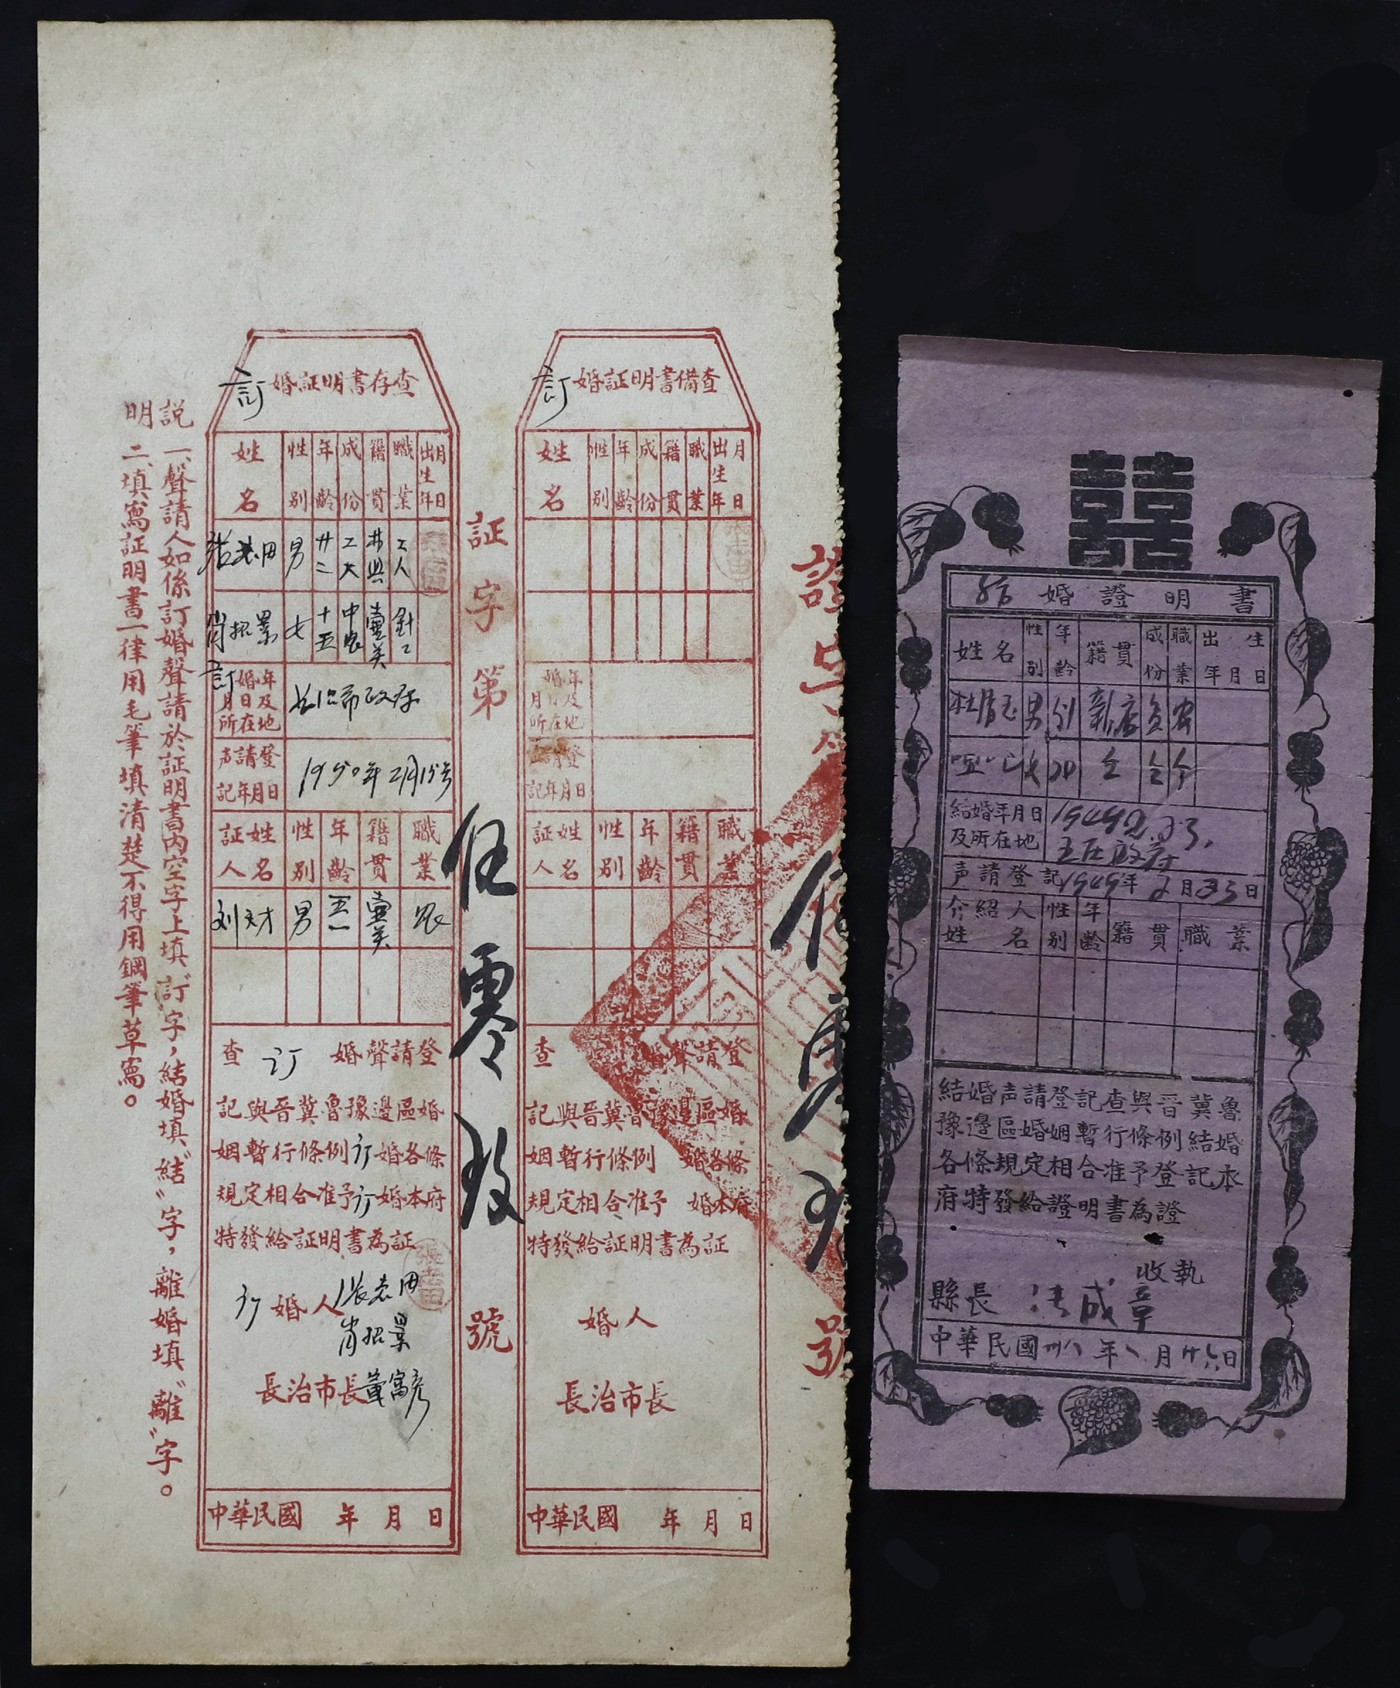 説明
一、聲請人如係訂婚聲請於証明書內空字上填〝訂〞字，結婚填〝結〞字，離婚填〝離〞字。
二、填寫証明書一律用毛筆填清楚不得用鋼筆草寫。
訂婚証明書存查
姓名 性別 年齡 成份 籍貫 職業 出生年月日
張志田 男 廿二 工大 工人
肖招景 女 十五 中農 壺关 針工
訂婚年月日及所在地 長治市政府
声請登記年月日 1950年2月15号
証人姓名 性別 年齡 籍貫 職業
刘天才 男 五一 壺关 農
查訂婚聲請登
記與晋冀魯豫邊區婚
姻暫行條例訂婚各條
規定相合准予訂婚本府
特發給証明書為証
訂婚人 張志田
肖招景
長治市長
中華民國 年 月 日
証字第伍零玖號
訂婚証明書備查
姓名 性別 年齡 成份 籍貫 職業 出生年月日
婚年月日及所在地
声請登記年月日
証人姓名 性別 年齡 籍貫 職業
查 婚聲請登
記與晋冀魯豫邊區婚
姻暫行條例 婚各條
規定相合准予 婚本府
特發給証明書為証
婚人
長治市長
中華民國 年 月 日
證字第伍零玖號
囍
結婚證明書
姓名 性別 年齡 籍貫 成份 職業 出生年月日
男 21 新店 貧 農
女 20 仝 仝 仝
結婚年月日及所在地 1949.2.23.
五区政府
声請登記 1949年2月23日
介紹人姓名 性別 年齡 籍貫 職業
結婚声請登記查與晉冀魯
豫邊區婚姻暫行條例結婚
各條規定相合准予登記本
府特發給證明書為證
收執
縣長 成章
中華民國卅八年 月廿六日